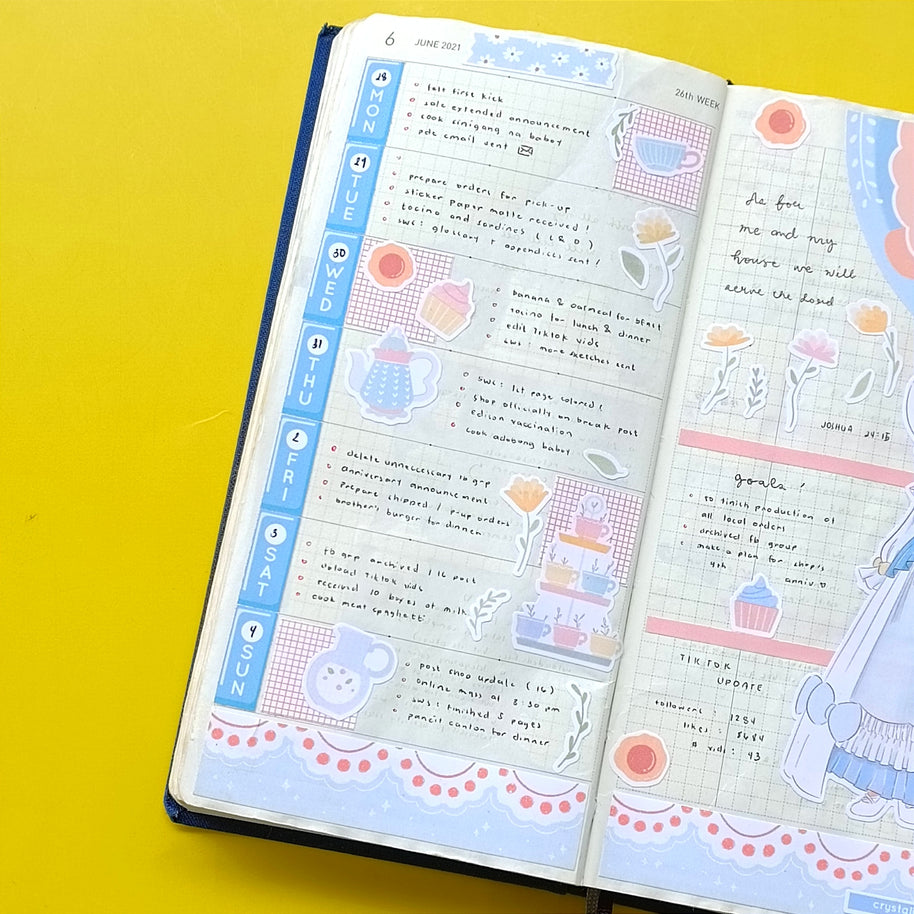 6 JUNE 2021
26th WEEK
28 MON
felt first kick
sale extended announcement
cook sinigang na baboy
pdc email sent
29 TUE
prepare orders for pick-up
sticker paper matte received !
tocino and sardines ( L & D )
sws: glossary + appendices sent !
30 WED
banana & oatmeal for bfast
tocino for lunch & dinner
edit tiktok vids
sws : more sketches sent
31 THU
sws : 1st page colored !
shop officially on break post
edison vaccination
cook adobong baboy
2 FRI
delete unneccesary ig grp
anniversary announcement
prepare shipped / p-up orders
brother's burger for dinner
3 SAT
fb grp archived / ig post
upload tiktok vids
received 10 boxes of milk
cook meat spaghetti
4 SUN
post shop update ( ig )
online mass at 8:30 pm
sws : finished 5 pages
pancit canton for dinner
As for
me and my
house we will
serve the Lord
JOSHUA 24:15
goals !
to finish production of
all local orders
archived fb group
make a plan for shop's
4th anniv.
TIKTOK
UPDATE
followers 1284
likes : 5484
# vids : 43